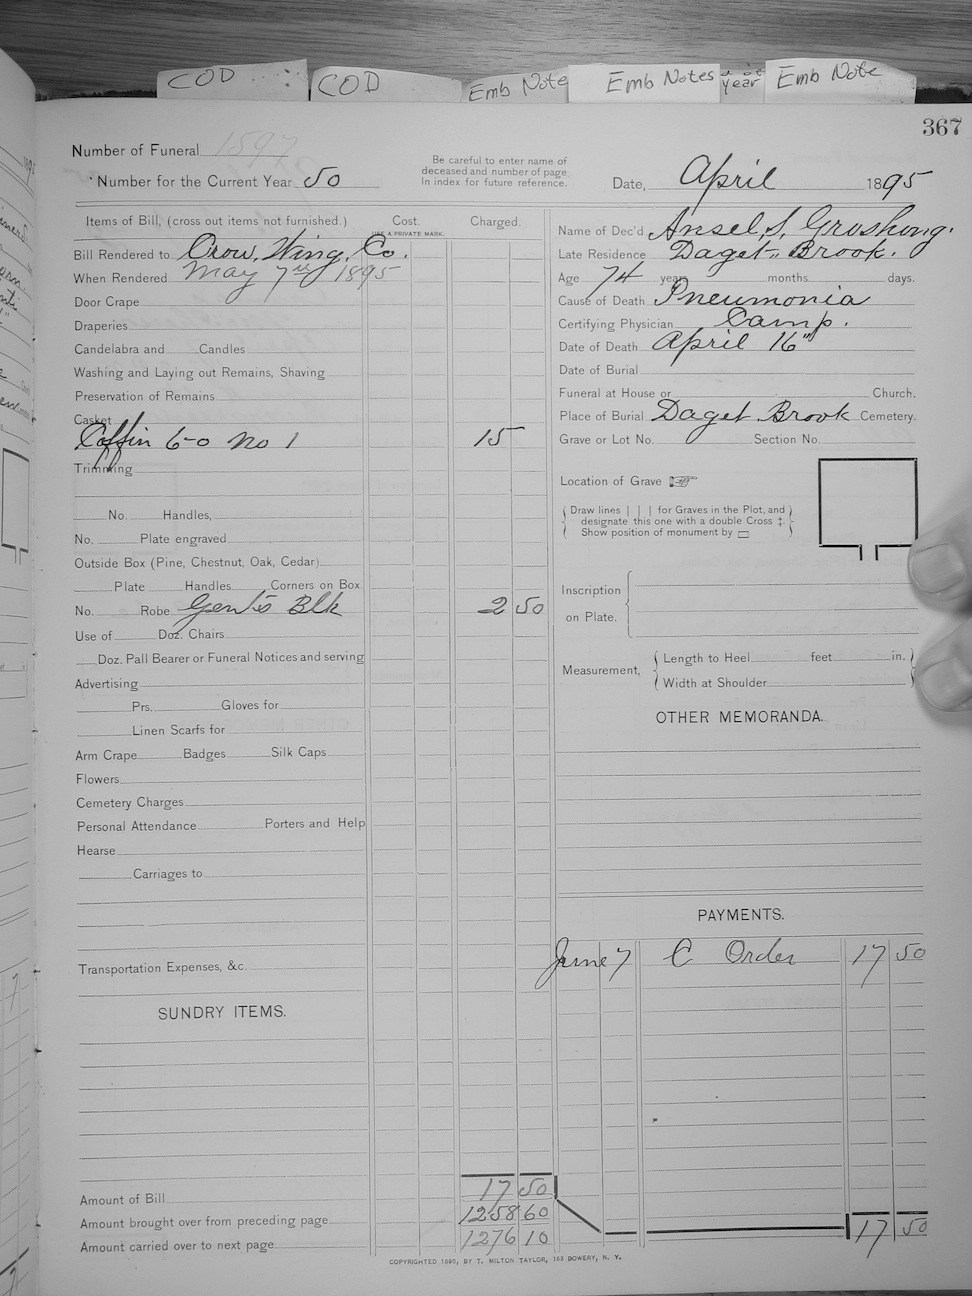 COD
COD
Emb Note
Emb Notes
year
Emb Note
367
Number of Funeral 1597
Number for the Current Year 50
Be careful to enter name of
deceased and number of page
in index for future reference.
Date, April 1895
Items of Bill, (cross out items not furnished.) Cost. Charged.
USE A PRIVATE MARK.
Bill Rendered to Crow Wing Co.
When Rendered May 7" 1895
Door Crape
Draperies
Candelabra and Candles
Washing and Laying out Remains, Shaving
Preservation of Remains
Casket
Coffin 6-0 No 1 15
Trimming
No. Handles,
No. Plate engraved
Outside Box (Pine, Chestnut, Oak, Cedar)
Plate Handles Corners on Box.
No. Robe Gent's Blk 2 50
Use of Doz. Chairs
Doz. Pall Bearer or Funeral Notices and serving
Advertising
Prs. Gloves for
Linen Scarfs for
Arm Crape Badges Silk Caps
Flowers
Cemetery Charges
Personal Attendance Porters and Help
Hearse
Carriages to
Transportation Expenses, &c.
SUNDRY ITEMS.
Amount of Bill 17 50
Amount brought over from preceding page 1258 60
Amount carried over to next page 1276 10
Name of Dec'd Ansel S. Groshong.
Late Residence Daget" Brook.
Age 74 years months days.
Cause of Death Pneumonia
Certifying Physician Camp.
Date of Death April 16"
Date of Burial
Funeral at House or Church.
Place of Burial Daget Brook Cemetery.
Grave or Lot No. Section No.
Location of Grave ☞
Draw lines | | | for Graves in the Plot, and
designate this one with a double Cross ‡.
Show position of monument by ▭
Inscription
on Plate.
Measurement, Length to Heel feet in.
Width at Shoulder
OTHER MEMORANDA.
PAYMENTS.
June 7 C Order 17 50
17 50
COPYRIGHTED 1890, BY T. MILTON TAYLOR, 163 BOWERY, N. Y.